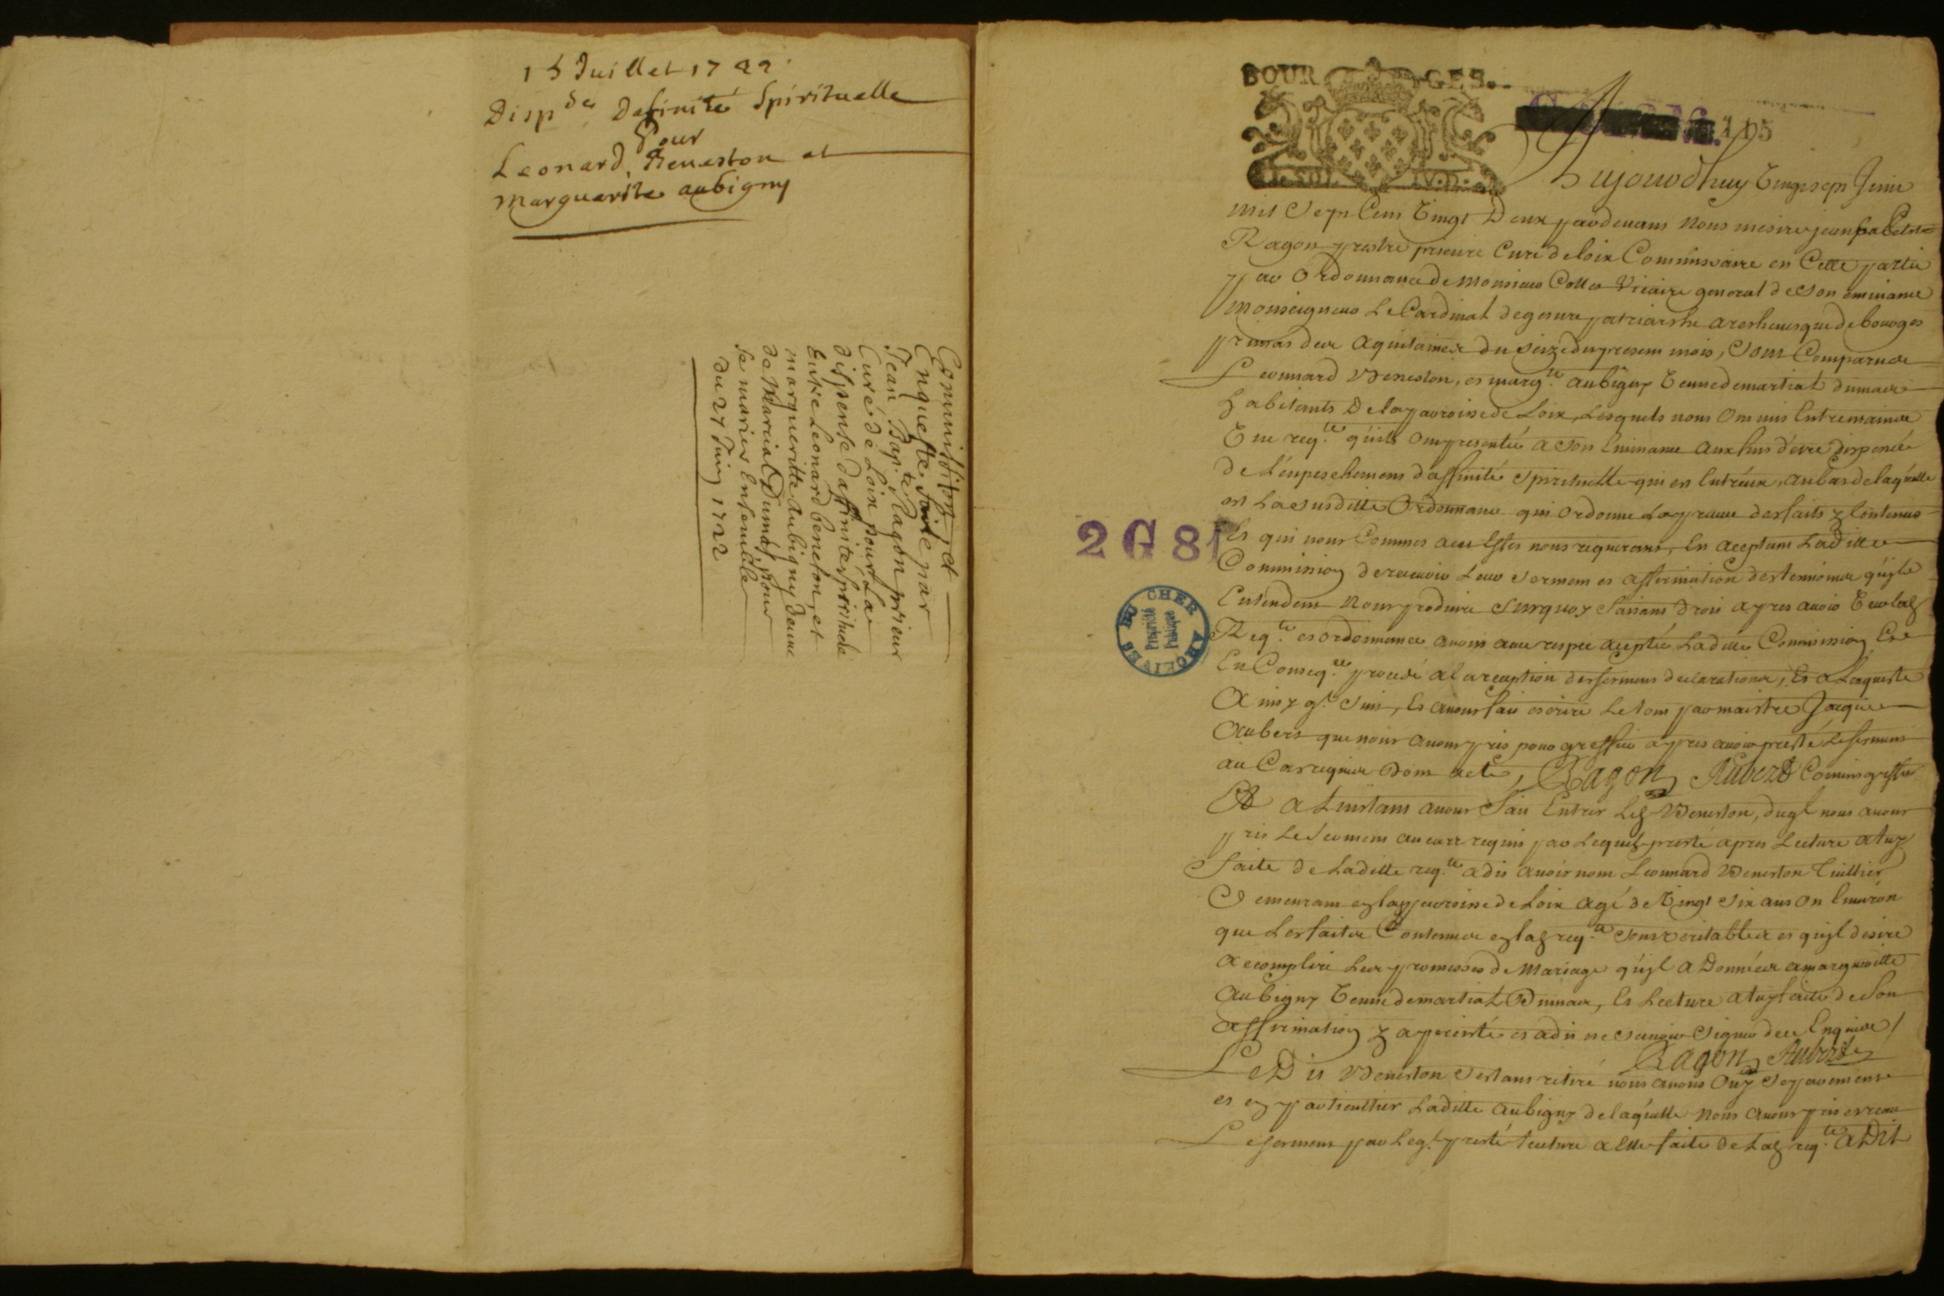 15 Juillet 1722
Disp des dafinité Spirituelle
Pour
Leonard Beneston et
marguerite aubigny
Commission et
Enqueste faite par
Jean Bap.te Ragon prieur
Curé de Loix pour la
dispense daffinité spirituelle
Entre Leonard beneston, et
margueritte Aubigny veuve
de Marcial Dumas, pour
se marier Ensemble
du 27 Juin 1722
BOURGES.
115
2 G 81
ARCHIVES DU CHER
Propriété
Publique
Aujourdhuy Vingt sept Juin
mil Sept Cens Vingt Deux pardevant nous messire jean baptiste
Ragon prestre prieur Curé de loix Commissaire en Cette partie
par Ordonnance de Monsieur Vicaire general de son eminance
Monseigneur Le Cardinal de gesvre patriarche archevesque de bourges
primat des aquitaines du seize du present mois, sont Comparus
Leonnard Beneston, et marg.te aubigny veuve de martial dumas
habitants De la parroisse de Loix, Lesquels nous ont mis Entre mains
Une req.te quils ont presentée a Son Eminance aux fins d'etre dispencé
de L'enpeschement daffinité spirituelle qui est Entreux, au bas de laquelle
est La susditte Ordonnance qui ordonne La preuve des faits y Contenus
Et qui nous Commet nous requerant, En aceptant Laditte
Commission de recevoir Leur serment et affirmation des temoins quils
Entendent nous produire surquoy faisant droit apres avoir veu lad
Req.te et ordonnance avons avec respec aceptée Laditte Commission Et
En Conseq.ce procedé a La reception des sermens declarations, Et a Lenqueste
Ainsy q.l suit, Et avons fait escrire Le tout par maistre Jacques
Aubert que nous avons pris pour greffier apres avoir presté Le serment
au Cas requis Dont acte, Ragon Aubert Commis greffier
Et a Linstant avons fait Entrer Led Beneston, duql nous avons
pris Le serment au cas requis par Lequel presté apres Lecture a luy
faite de Laditte req.te a dit avoir nom Leonnard Beneston
Demeurant en la parroisse de Loix agé de Vingt six ans ou Environ
que Les faits Contenus en lad req.te sont veritables et quil desire
acomplire Les promesses de Mariage quil a Données a marguerite
Aubigny veuve de martial Dumas, Et Lecture a luy faite de son
affirmation y a persisté et a dit ne scavoir signer de ce Enquis
Ragon Aubert
Le Dit Beneston sestant retiré nous avons Ouy separement
et en particullier Laditte aubigny de laquelle nous avons pris et receu
Le serment par Leq.l presté Lecture a Elle faite de Lad req.te a Dit